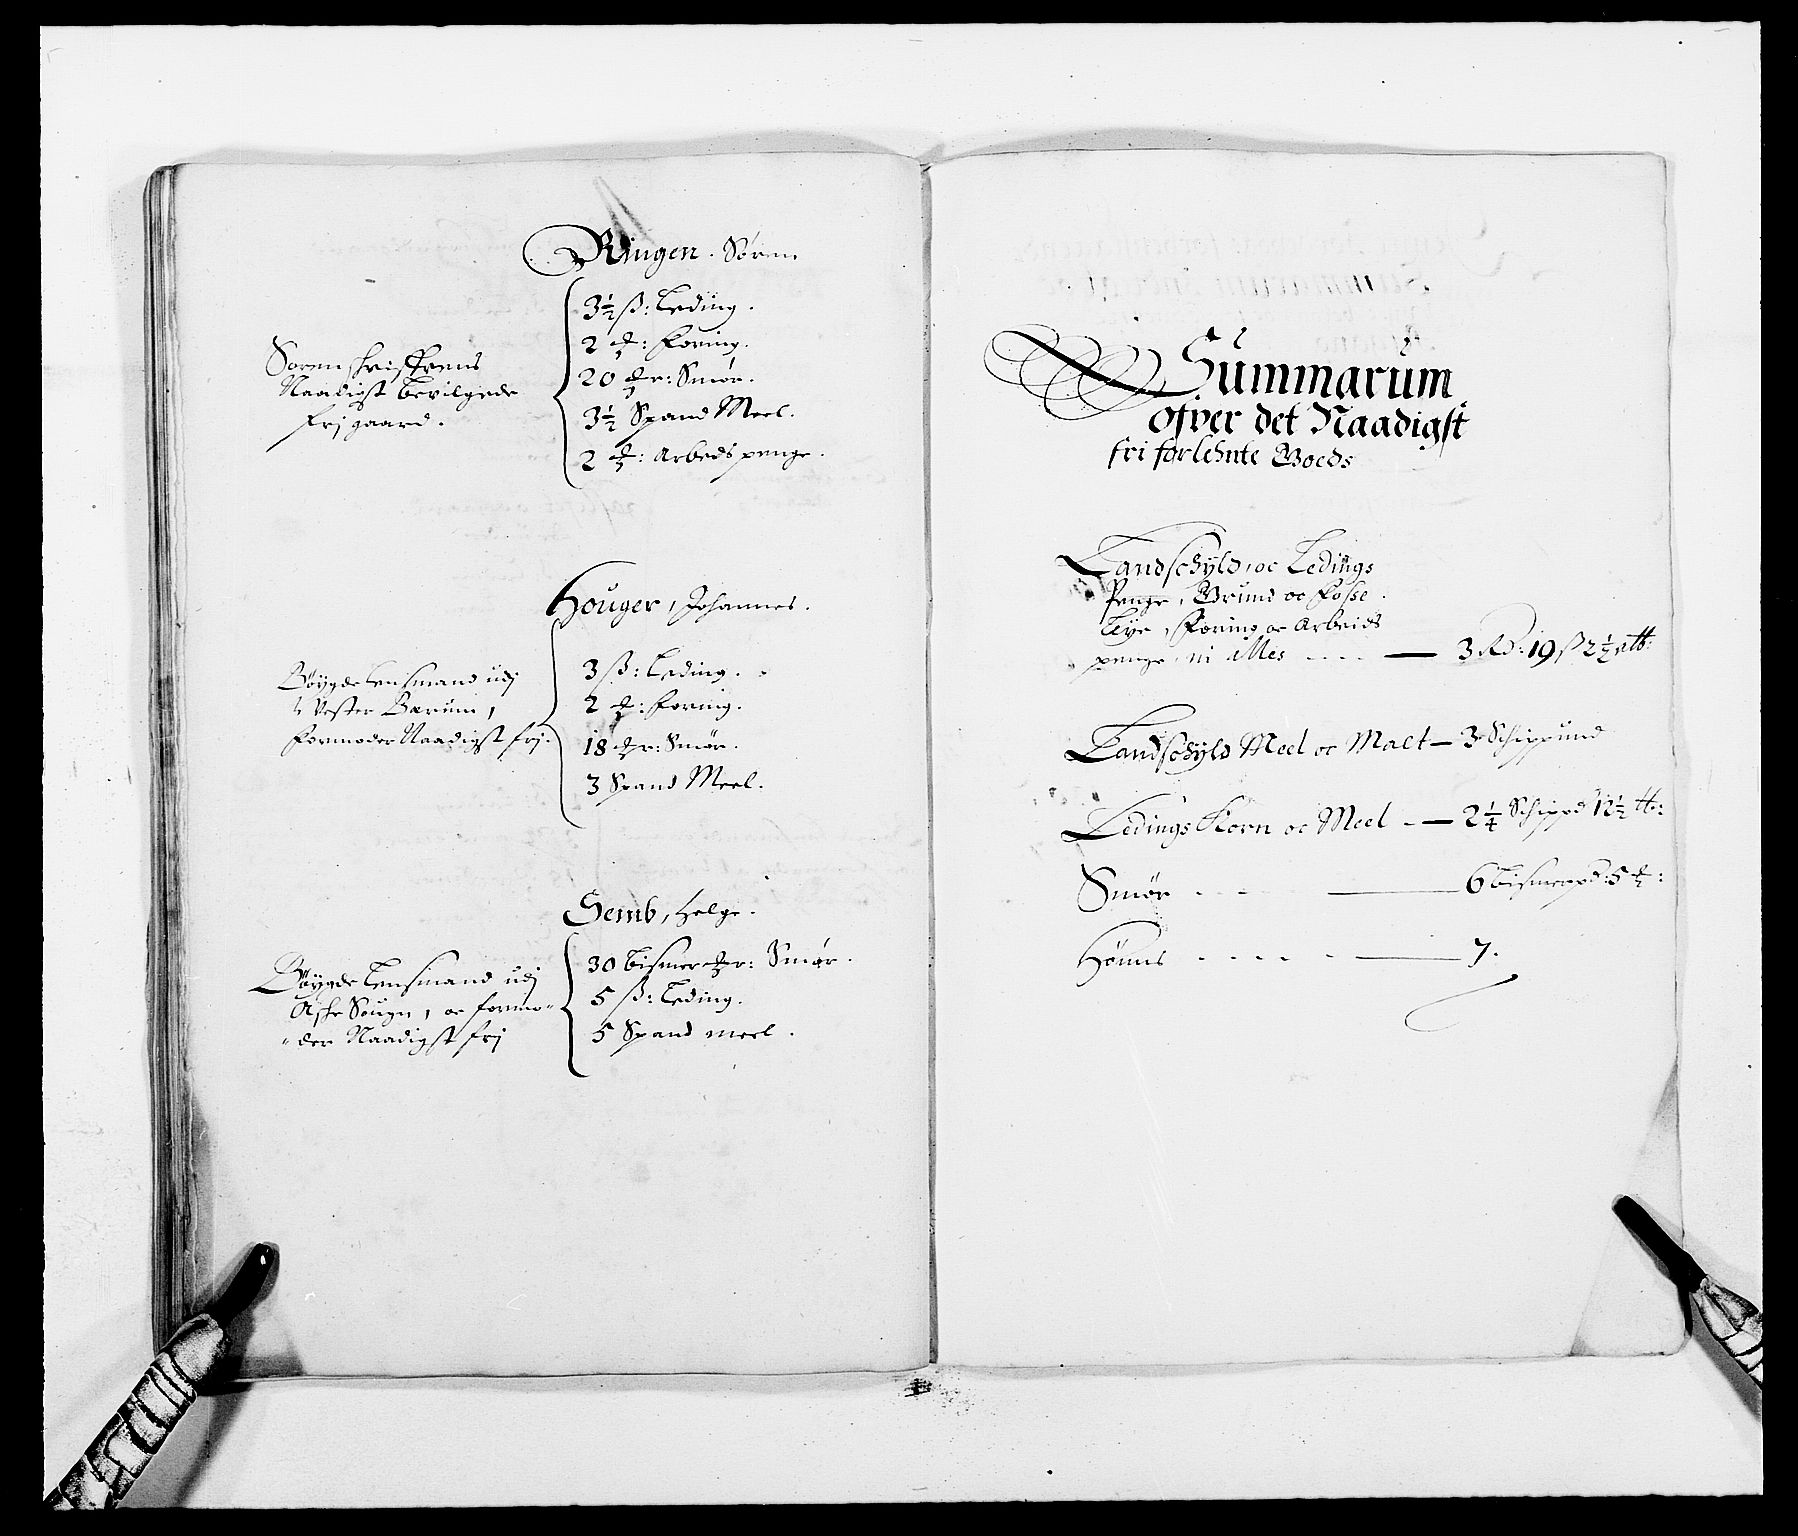 Ringen. Søren
Sorenschriffrens
Naadigst bevilgede
frj gaard.
3½ ß: Leding.
2 ₰: Foring.
20 ₰r: Smør.
3½ Spand Meel.
2 ₰: Arbeds penge.
Houger, Johannes.
Bøygde Lensmand udj
Vester Bærum,
Formoder Naadigst frj.
3 ß: Leding.
2 ₰: Foring.
18 ₰r: Smør.
3 Spand Meel.
Semb, Helge.
Bøygde Lensmand udj
Aske Sougn, oc formo-
-der Naadigst frj
30 bismer ₰r: Smør.
5 ß: Leding.
5 Spand meel.
Summarum
ofver det Naadigst
fri forlehnte Goeds
Landschyld, oc Ledings
Penge, Grund oc Fosse
Leye, Foring oc Arbeids
penge, alles - - - - 3 Rd: 19 ß 2½
Landschyld Meel oc Malt - 3 Schippund
Ledings Korn oc Meel - - 2¼ Schippd 12½ ℔:
Smør - - - - 6 bismerpd: 5 ₰:
Hønns - - - - - 7.